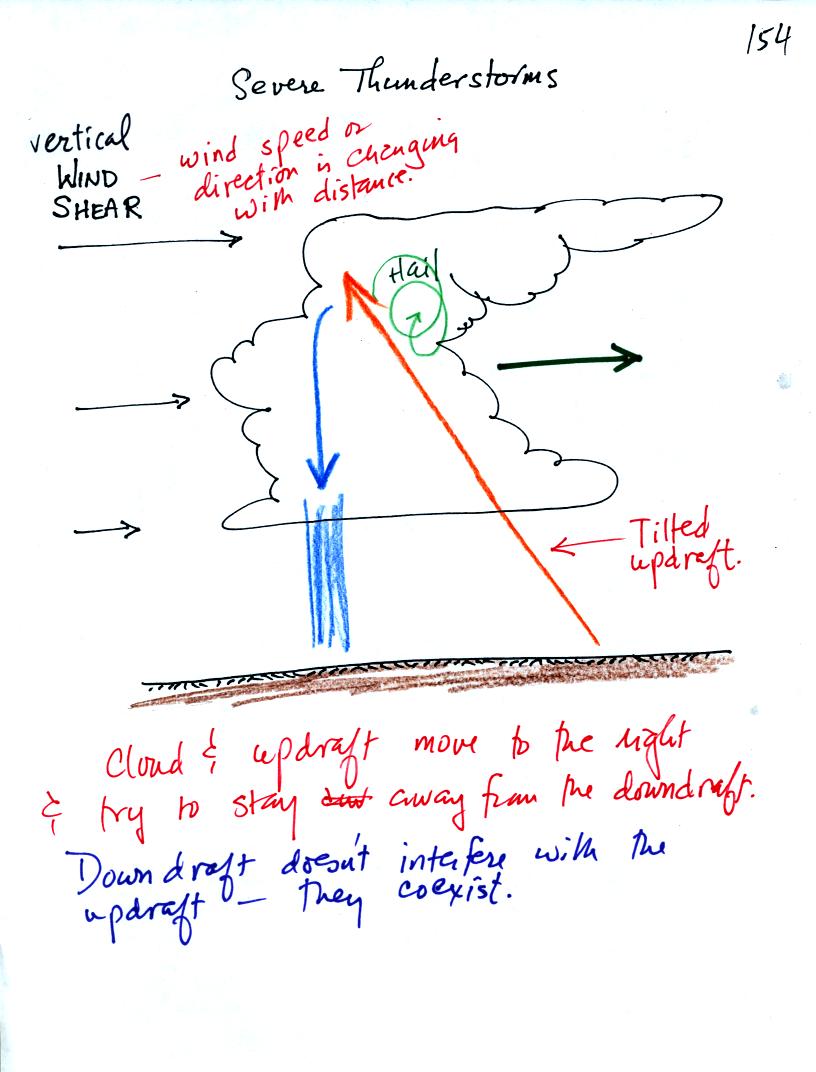 154
Severe Thunderstorms
vertical
WIND
SHEAR
— wind speed or
direction is changing
with distance.
Hail
Tilted
updraft.
Cloud & updraft move to the right
& try to stay away from the downdraft.
Downdraft doesn't interfere with the
updraft — they coexist.